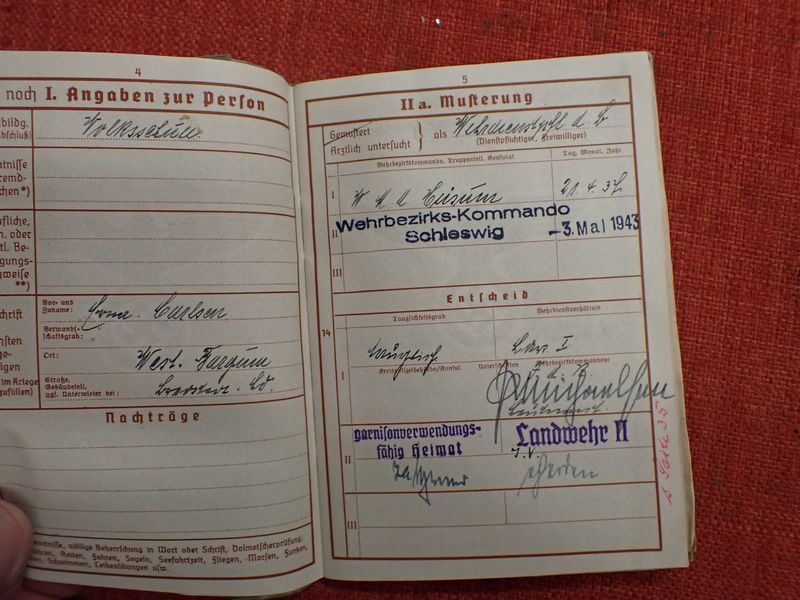 4
noch I. Angaben zur Person
bildg.
bschluß)
Volksschule
ntnisse
remd-
chen*)
ufliche,
n. oder
tl. Be-
gungs-
gweise
**)
Vor- und
Zuname:
Carlsen
Verwandt-
schaftsgrad:
Ort:
West.
Straße,
Gebäudeteil,
ggl. Untermieter bei:
im Kriege
zufüllen)
Nachträge
enntnisse, völlige Beherrschung in Wort oder Schrift, Dolmetscherprüfung.
Fahren, Reiten, Fahren, Segeln, Seefahrtzeit, Fliegen, Morsen, Funken,
en, Schwimmen, Leibesübungen usw.
5
II a. Musterung
Gemustert
Ärztlich untersucht
als
Wehrdienstpfl. d. B
(Dienstpflichtiger, Freiwilliger)
Wehrbezirkskommando, Truppenteil, Konsulat
Tag, Monat, Jahr
I
Husum
21.4.37
II
Wehrbezirks-Kommando
Schleswig
-3. Mai 1943
III
Entscheid
Tauglichkeitsgrad
Wehrdienstverhältnis
14
I
tauglich
Ldw. I
Kreispolizeibehörde/Konsul
Unterschriften
Wehrbezirkskommandeur
II
garnisonverwendungs-
fähig Heimat
Landwehr II
J.V.
III
s. Seite 35